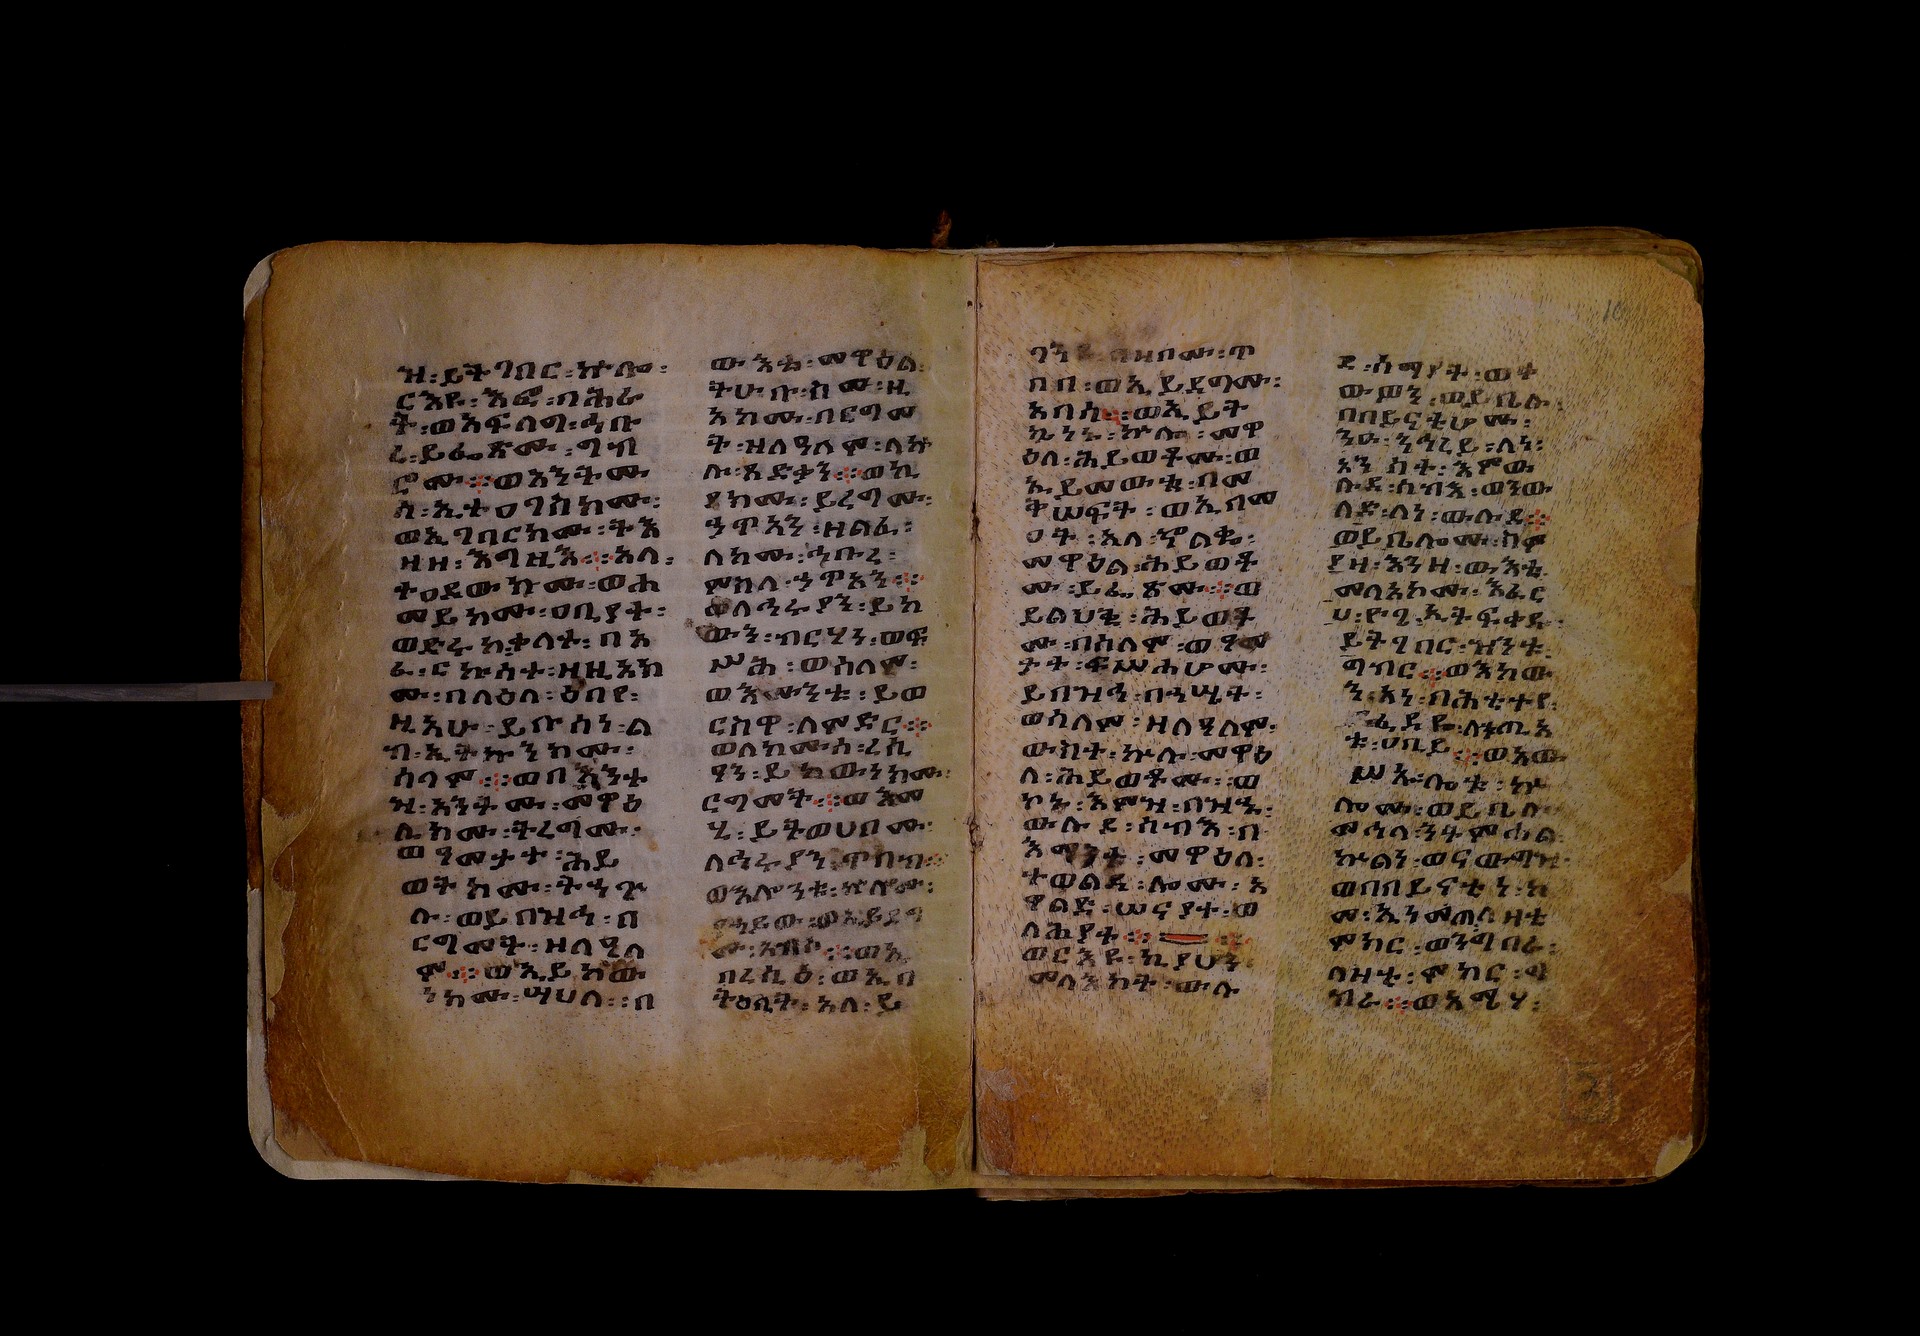 ዝ፡ይትገበር፡ኵሎ፡
ርእዩ፡እፎ፡በሕሪ
ት፡ወእፍለግ፡ኀቡ
ረ፡ይፌጽሙ፡ግብ
ሮሙ።ወአንትሙ
ሰ፡ኢተዐገስክሙ፡
ወኢገበርክሙ፡ትእ
ዛዘ፡እግዚእ።አላ፡
ተዐደውክሙ፡ወሐ
መይክሙ፡ዐቢያተ፡
ወድሩክቃላተ፡በአ
ፈ፡ርኩሰት፡ዚአክ
ሙ፡በላዕለ፡ዕበየ፡
ዚአሁ፡ይቡሳነ፡ል
ብ፡ኢትኩንክሙ፡
ሰላም።ወበእንተ
ዝ፡አንትሙ፡መዋዕ
ሊክሙ፡ትረግሙ፡
ወዓመታተ፡ሕይ
ወትክሙ፡ትኃጕ
ሉ፡ወይበዝኅ፡በ
ርግመት፡ዘለዓለ
ም።ወኢይከው
ንክሙ፡ሣህል፡በ
ውእቱ፡መዋዕል፡
ትሁቡ፡ሰሙ፡ዚ
አክሙ፡በርግመ
ት፡ዘለዓለም፡ለኵ
ሉ፡ጻድቃን።ወኪ
ያክሙ፡ይረግሙ፡
ኃጥአን፡ዘልፈ፡
ለክሙ፡ኅቡረ፡
ምስለ፡ኃጥአን።
ወለኅሩያን፡ይከ
ውን፡ብርሃን፡ወፍ
ሥሕ፡ወሰላም፡
ወእሙንቱ፡ይወ
ርስዋ፡ለምድር።
ወለክሙሰ፡ረሲ
ዓን፡ይከውነክሙ፡
ርግመት።ወእመ
ሂ፡ይትወሀቦሙ፡
ለኅሩያን፡ጥበብ፡
ወእሎንቱ፡ኵሎሙ፡
የሐይው፡ወኢይደግ
ሙ፡አበሰ።ወኢ
በረሲዕ፡ወኢበ
ትዕቢት፡አላ፡ይ
በብ፡ወኢይደግሙ፡
አብሶ።ወኢይት
ኴነኑ፡ኵሎ፡መዋ
ዕለ፡ሕይወቶሙ፡ወ
ኢይመውቱ፡በመ
ቅሠፍት፡ወኢበመ
ዐት፡አላ፡ኍልቈ፡
መዋዕል፡ሕይወቶ
ሙ፡ይፌጽሙ።ወ
ይልህቂ፡ሕይወቶ
ሙ፡በሰላም፡ወዓመ
ታተ፡ፍሥሐሆሙ፡
ይበዝኅ፡በኃሤት፡
ወሰላም፡ዘለዓለም፡
ውስተ፡ኵሉ፡መዋዕ
ለ፡ሕይወቶሙ፡፡ወ
ኮነ፡እምዝ፡በዝኁ፡
ውሉደ፡ሰብእ፡በ
እማንቱ፡መዋዕል፡
ተወልዳ፡ሎሙ፡አ
ዋልድ፡ሠናያት፡ወ
ላሕያት።
ወርእዩ፡ኪያሆን፡
መላእክት፡ውሉ
ደ፡ሰማያት፡ወፈ
ተውዎን፡ወይቤሉ፡
በበይናቲሆሙ፡
ንዑ፡ንኅረይ፡ለነ፡
አንስተ፡እምው
ሉደ፡ሰብእ፡ወንው
ለድ፡ለነ፡ውሉደ።
ወይቤሎሙ፡ስም
ያዛ፡እንዘ፡ውእቱ፡
መልአኮሙ፡እፈር
ሀ፡ዮጊ፡ኢትፈቅዱ፡
ይትገበር፡ዝንቱ፡
ግብር።ወእከው
ን፡አነ፡ባሕቲትየ፡
ፈዳዬ፡ለኃጢአ
ት፡ዐባይ።ወአው
ሥኡ፡ሎቱ፡ኵ
ሎሙ፡ወይቤሉ፡
መሐላ፡ንትመሐል፡
ኵልነ፡ወናውግዝ፡
ወበበይናቲነ፡ከ
መ፡ኢንመጠ፡ለዛቲ፡
ምክር፡ወንግበራ፡
ለዛቲ፡ምክር፡ግ
ብረ።ወአሜሃ፡